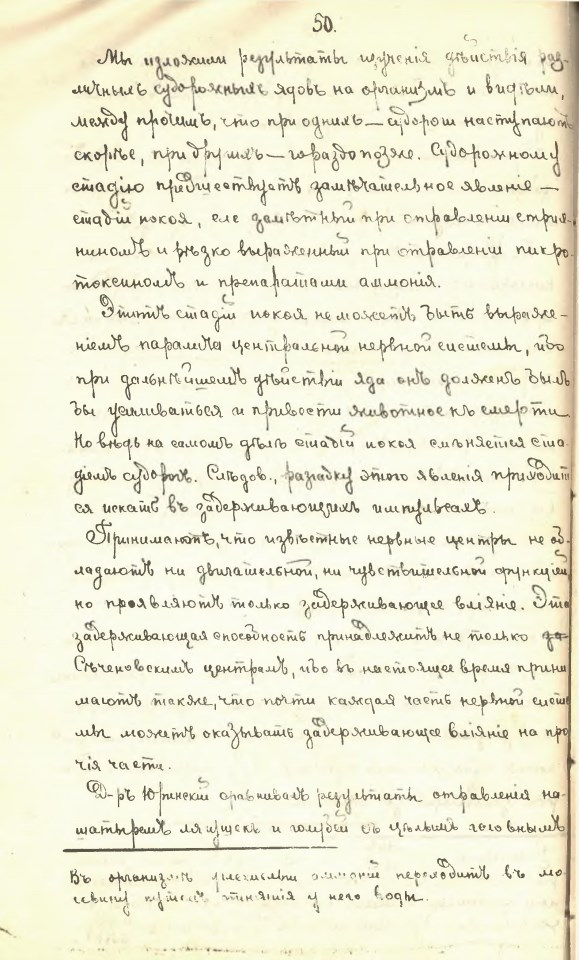 50.
Мы изложили результаты изученія дѣйствія раз-
личныхъ судорожныхъ ядовъ на организмъ и видѣли,
между прочимъ, что при однихъ — судороги наступаютъ
скорѣе, при другихъ — гораздо позже. Судорожному
стадію предшествуетъ замѣчательное явленіе —
стадій покоя, еле замѣтный при отравленіи стрих-
ниномъ и рѣзко выраженный при отравленіи пикро-
токсиномъ и препаратами аммонія.
Этотъ стадій покоя не можетъ быть выраже-
ніемъ паралича центральной нервной системы, ибо
при дальнѣйшемъ дѣйствіи яда онъ долженъ былъ
бы усиливаться и привести животное къ смерти.
Но вѣдь на самомъ дѣлѣ стадій покоя смѣняется ста-
діемъ судорогъ. Слѣдов., разгадку этого явленія приходит
ся искать въ задерживающихъ импульсахъ.
Принимаютъ, что извѣстные нервные центры не об-
ладаютъ ни двигательной, ни чувствительной функціей,
но проявляютъ только задерживающее вліяніе. Эта
задерживающая способность принадлежитъ не только
Сѣченовскимъ центрамъ, ибо въ настоящее время прини
маютъ также, что почти каждая часть нервной систе
мы можетъ оказывать задерживающее вліяніе на про
чія части.
Д-ръ Юринскій сравнивалъ результаты отравленія на-
шатыремъ лягушекъ и голубей съ цѣлымъ головнымъ
Въ организмѣ углекислый аммоній переходитъ въ мо-
чевину путемъ отнятія у него воды.